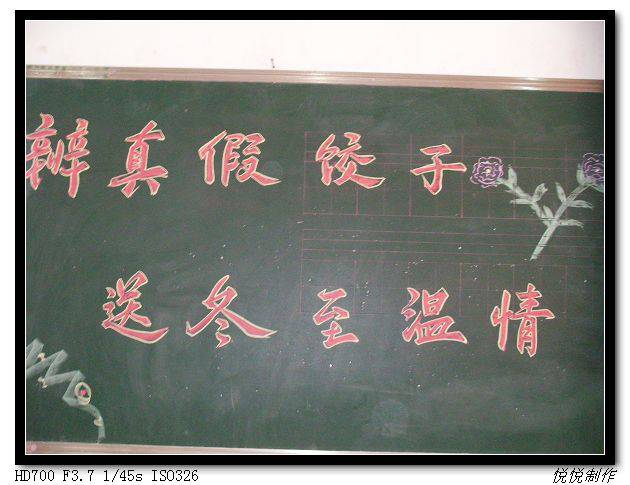 辨真假饺子
送冬至温情
HD700 F3.7 1/45s ISO326
悦悦制作